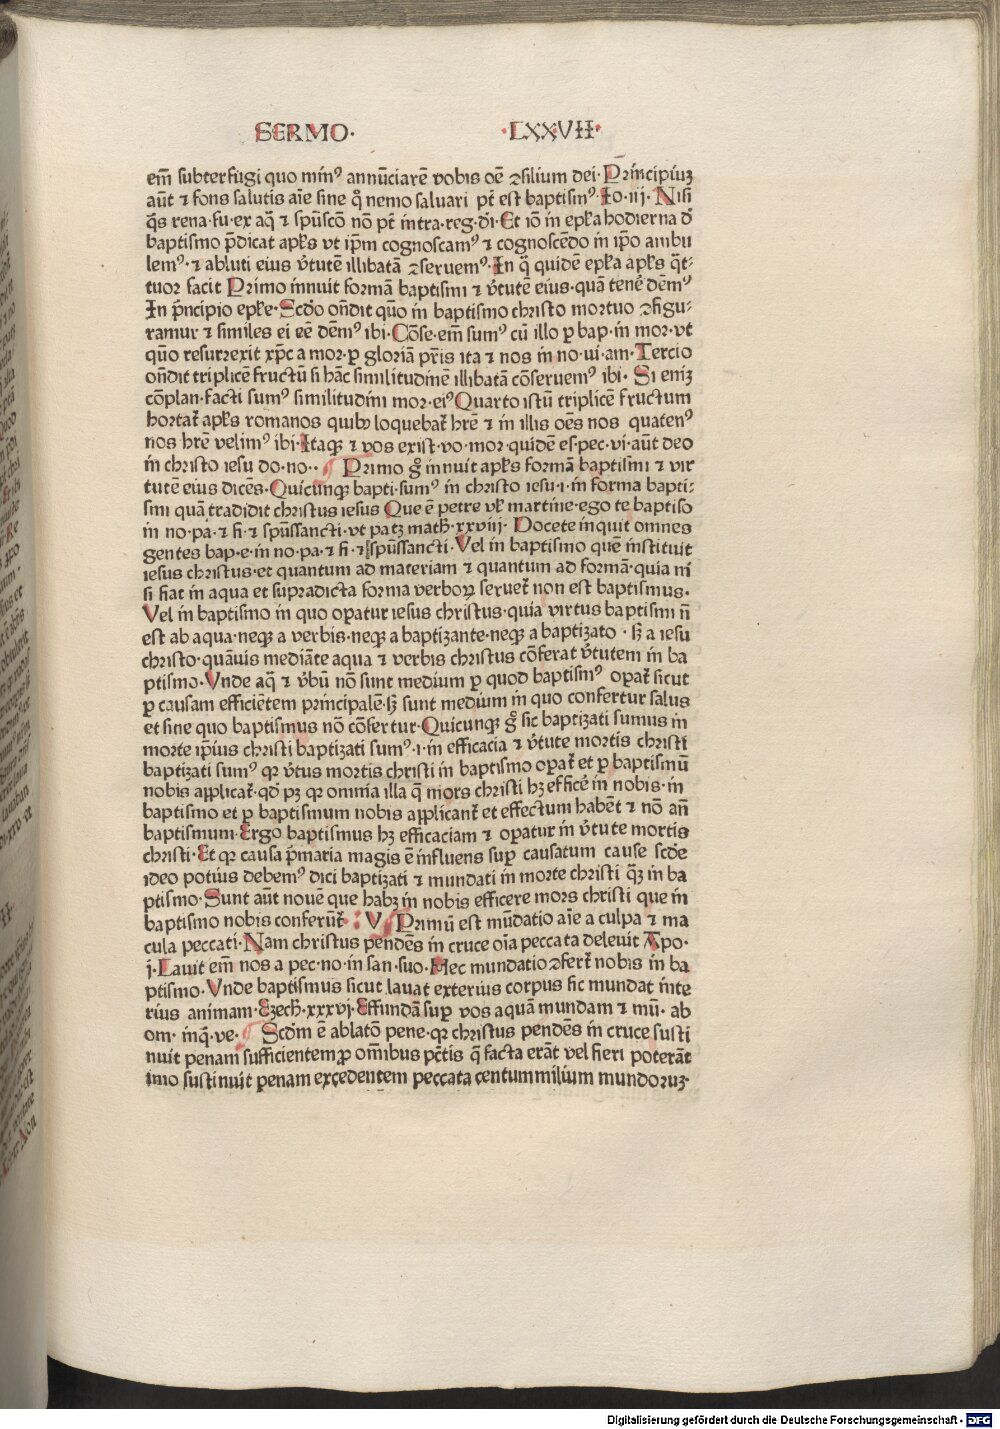 SERMO· ·LXXVII·
em̅ subterfugi quo minꝰ annu̅ciare̅ vobis oe̅ ꝯsilium dei· Principiu̅ꝫ
au̅t ⁊ fons salutis ai̅e sine q̊ nemo saluari pt̅ est baptismꝰ· Io· iij· Nisi
q̅s rena·fu·ex aq̅ ⁊ spu̅sco̅ no̅ pt̅ intra·reg·d̅i· Et io̅ in epl̅a hodierna d̅
baptismo p̅dicat apl̅s vt ip̅m cognoscamꝰ ⁊ cognosce̅do in ip̅o ambu
lemꝰ· ⁊ abluti eius v̓tute̅ illibata̅ ꝯseruemꝰ· In q̅ quide̅ epl̅a apl̅s q̅t⸗
tuor facit Primo innuit forma̅ baptismi ⁊ v̓tute̅ eius·qua̅ tene̓ de̅mꝰ
In p̅ncipio epl̅e· Scd̅o on̅dit quo̅ in baptismo christo mortuo ꝯfigu⸗
ramur ⁊ similes ei ee̅ de̅mꝰ ibi· Co̅se·em̅ sumꝰ cu̅ illo ꝑ bap·in mor·vt
quo̅ resurrexit xp̅c a mor·ꝑ gloria̅ pr̅is ita ⁊ nos in no·ui·am· Tercio
on̅dit triplice̅ fructu̅ si ha̅c similitudine̅ illibata̅ co̅seruemꝰ ibi· Si eniꝫ
co̅plan·facti sumꝰ similitudini mor·eiꝰ Quarto istu̅ triplice̅ fructum
hortat̅ apl̅s romanos quibꝫ loquebat̅ hr̅e ⁊ in illis oe̅s nos quatenꝰ
nos hr̅e velimꝰ ibi· Itaqꝫ ⁊ vos exist·vo·mor·quide̅ es·pec·vi·au̅t deo
in christo iesu do·no·· Primo g̊ innuit apl̅s forma̅ baptismi ⁊ vir
tute̅ eius dice̅s· Quicunqꝫ bapti·sumꝰ in christo iesu·i·in forma bapti⸗
smi qua̅ tradidit christus iesus Que e̅ petre vl̅ martine·ego te baptiso
in no·pa·⁊ fi·⁊ spu̅ssancti·vt patꝫ math̅·xxviij· Docete inquit omnes
gentes bap·e·in no·pa·⁊ fi·⁊ spu̅ssancti· Vel in baptismo que̅ instituit
iesus christus·et quantum ad materiam ⁊ quantum ad forma̅·quia ni
si fiat in aqua et supradicta forma verboꝝ seruet̅ non est baptismus·
Vel in baptismo in quo oꝑatur iesus christus·quia virtus baptismi n̅
est ab aqua·neqꝫ a verbis·neqꝫ a baptizante·neqꝫ a baptizato· sꝫ a iesu
christo·qua̅uis media̅te aqua ⁊ verbis christus co̅ferat v̓tutem in ba
ptismo· Vnde aq̅ ⁊ v̓bu̅ no̅ sunt medium ꝑ quod baptismꝰ oꝑat̅ sicut
ꝑ causam efficie̅tem principale̅·sꝫ sunt medium in quo confertur salus
et sine quo baptismus no̅ co̅fertur· Quicunqꝫ g̊ sic baptizati sumus in
morte ip̅ius christi baptizati sumꝰ·i·in efficacia ⁊ v̓tute mortis christi
baptizati sumꝰ qꝛ v̓tus mortis christi in baptismo oꝑat̅ et ꝑ baptismu̅
nobis applicat̅·qd̅ pꝫ qꝛ omnia illa q̅ mors christi hꝫ effice̓ in nobis·in
baptismo et ꝑ baptismum nobis applicant̅ et effectum habe̅t ⁊ no̅ an̅
baptismum· Ergo baptismus hꝫ efficaciam ⁊ oꝑatur in v̓tute mortis
christi· Et qꝛ causa p̅maria magis e̅ influens suꝑ causatum cause scd̅e
ideo potius debemꝰ dici baptizati ⁊ mundati in morte christi q̅ꝫ in ba
ptismo· Sunt au̅t noue̅ que habꝫ in nobis efficere mors christi que in
baptismo nobis conferu̅t̅· V Primu̅ est mu̅datio ai̅e a culpa ⁊ ma
cula peccati· Nam christus pende̅s in cruce oi̅a peccata deleuit Apo·
j· Lauit em̅ nos a pec·no·in san·suo· Hec mundatio ꝯfert̅ nobis in ba
ptismo· Vnde baptismus sicut lauat exterius corpus sic mundat inte
rius animam· Ezech̅·xxxvj· Effunda̅ suꝑ vos aqua̅ mundam ⁊ mu̅·ab
om· inq̅·ve· Scd̅m e̅ ablato̅ pene·qꝛ christus pende̅s in cruce susti
nuit penam sufficientem ꝓ om̅ibus pc̅tis q̅ facta era̅t vel fieri potera̅t
imo sustinuit penam excedentem peccata centummilium mundoruꝫ·
Digitalisierung gefördert durch die Deutsche Forschungsgemeinschaft · DFG